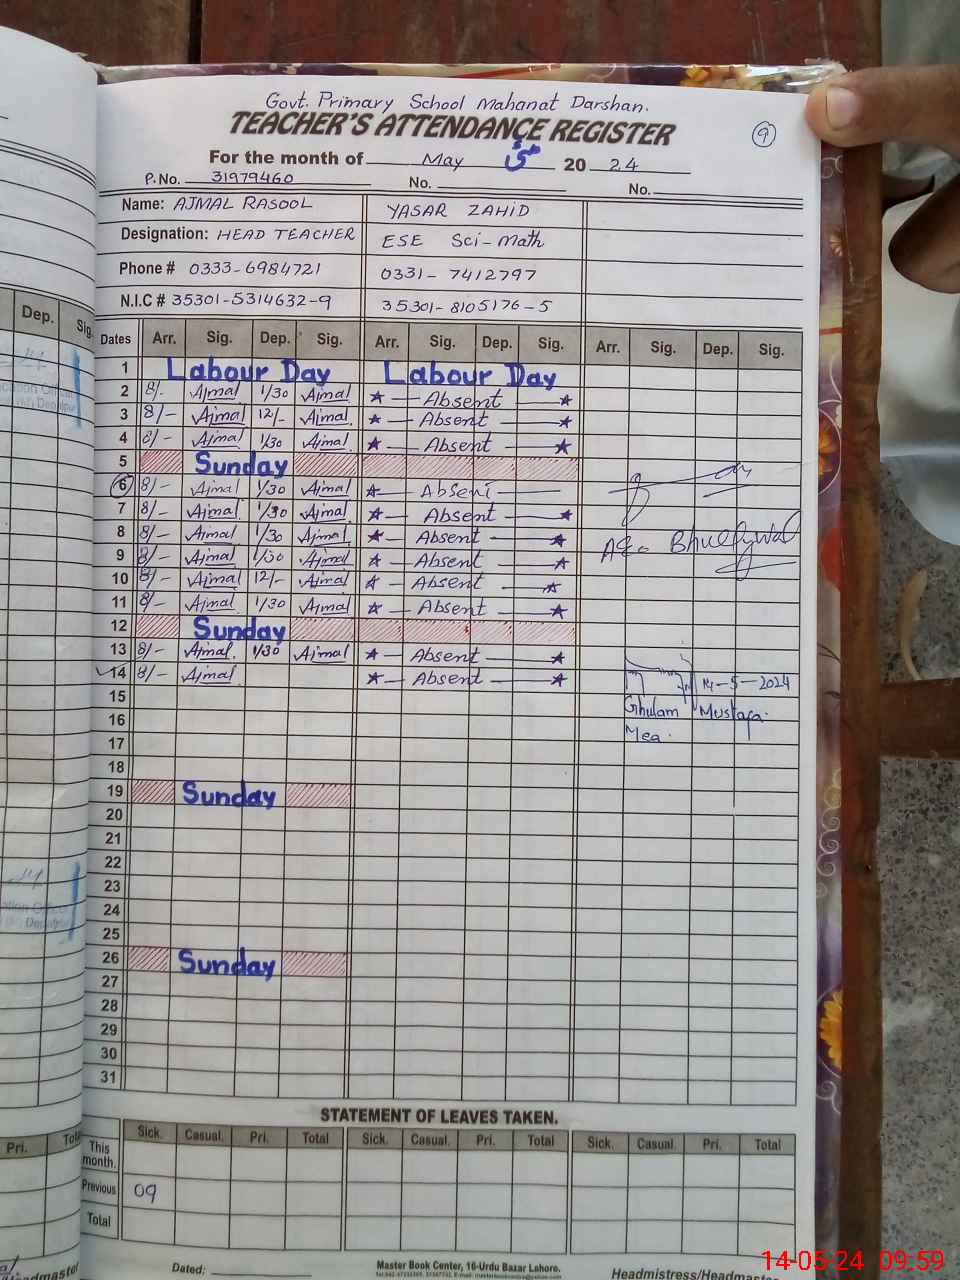 Govt. Primary School Mahanat Darshan.
TEACHER'S ATTENDANCE REGISTER
9
For the month of May 5th 20 24
P.No. 31979460 No. No.
Name: AJMAL RASOOL YASAR ZAHID
Designation: HEAD TEACHER ESE Sci-Math
Phone # 0333-6984721 0331-7412797
N.I.C # 35301-5314632-9 35301-8105176-5
Dep. Sig.
Dates Arr. Sig. Dep. Sig. Arr. Sig. Dep. Sig. Arr. Sig. Dep. Sig.
1 Labour Day Labour Day
2 8/- Ajmal 1/30 Ajmal Absent
3 8/- Ajmal 12/- Ajmal Absent
4 8/- Ajmal 1/30 Ajmal Absent
5 Sunday
6 8/- Ajmal 1/30 Ajmal Absent
7 8/- Ajmal 1/30 Ajmal Absent
8 8/- Ajmal 1/30 Ajmal Absent
9 8/- Ajmal 1/30 Ajmal Absent
10 8/- Ajmal 12/- Ajmal Absent
11 8/- Ajmal 1/30 Ajmal Absent
12 Sunday
13 8/- Ajmal 1/30 Ajmal Absent
14 8/- Ajmal Absent 14-5-2024
15 Ghulam Mustafa
16 Mea
17
18
19 Sunday
20
21
22
23
24
25
26 Sunday
27
28
29
30
31
STATEMENT OF LEAVES TAKEN.
Pri. Total
Sick. Casual. Pri. Total Sick. Casual. Pri. Total Sick. Casual. Pri. Total
This month.
Previous 09
Total
Dated: Master Book Center, 16-Urdu Bazar Lahore.
Headmistress/Headmaster
14-05-24 09:59